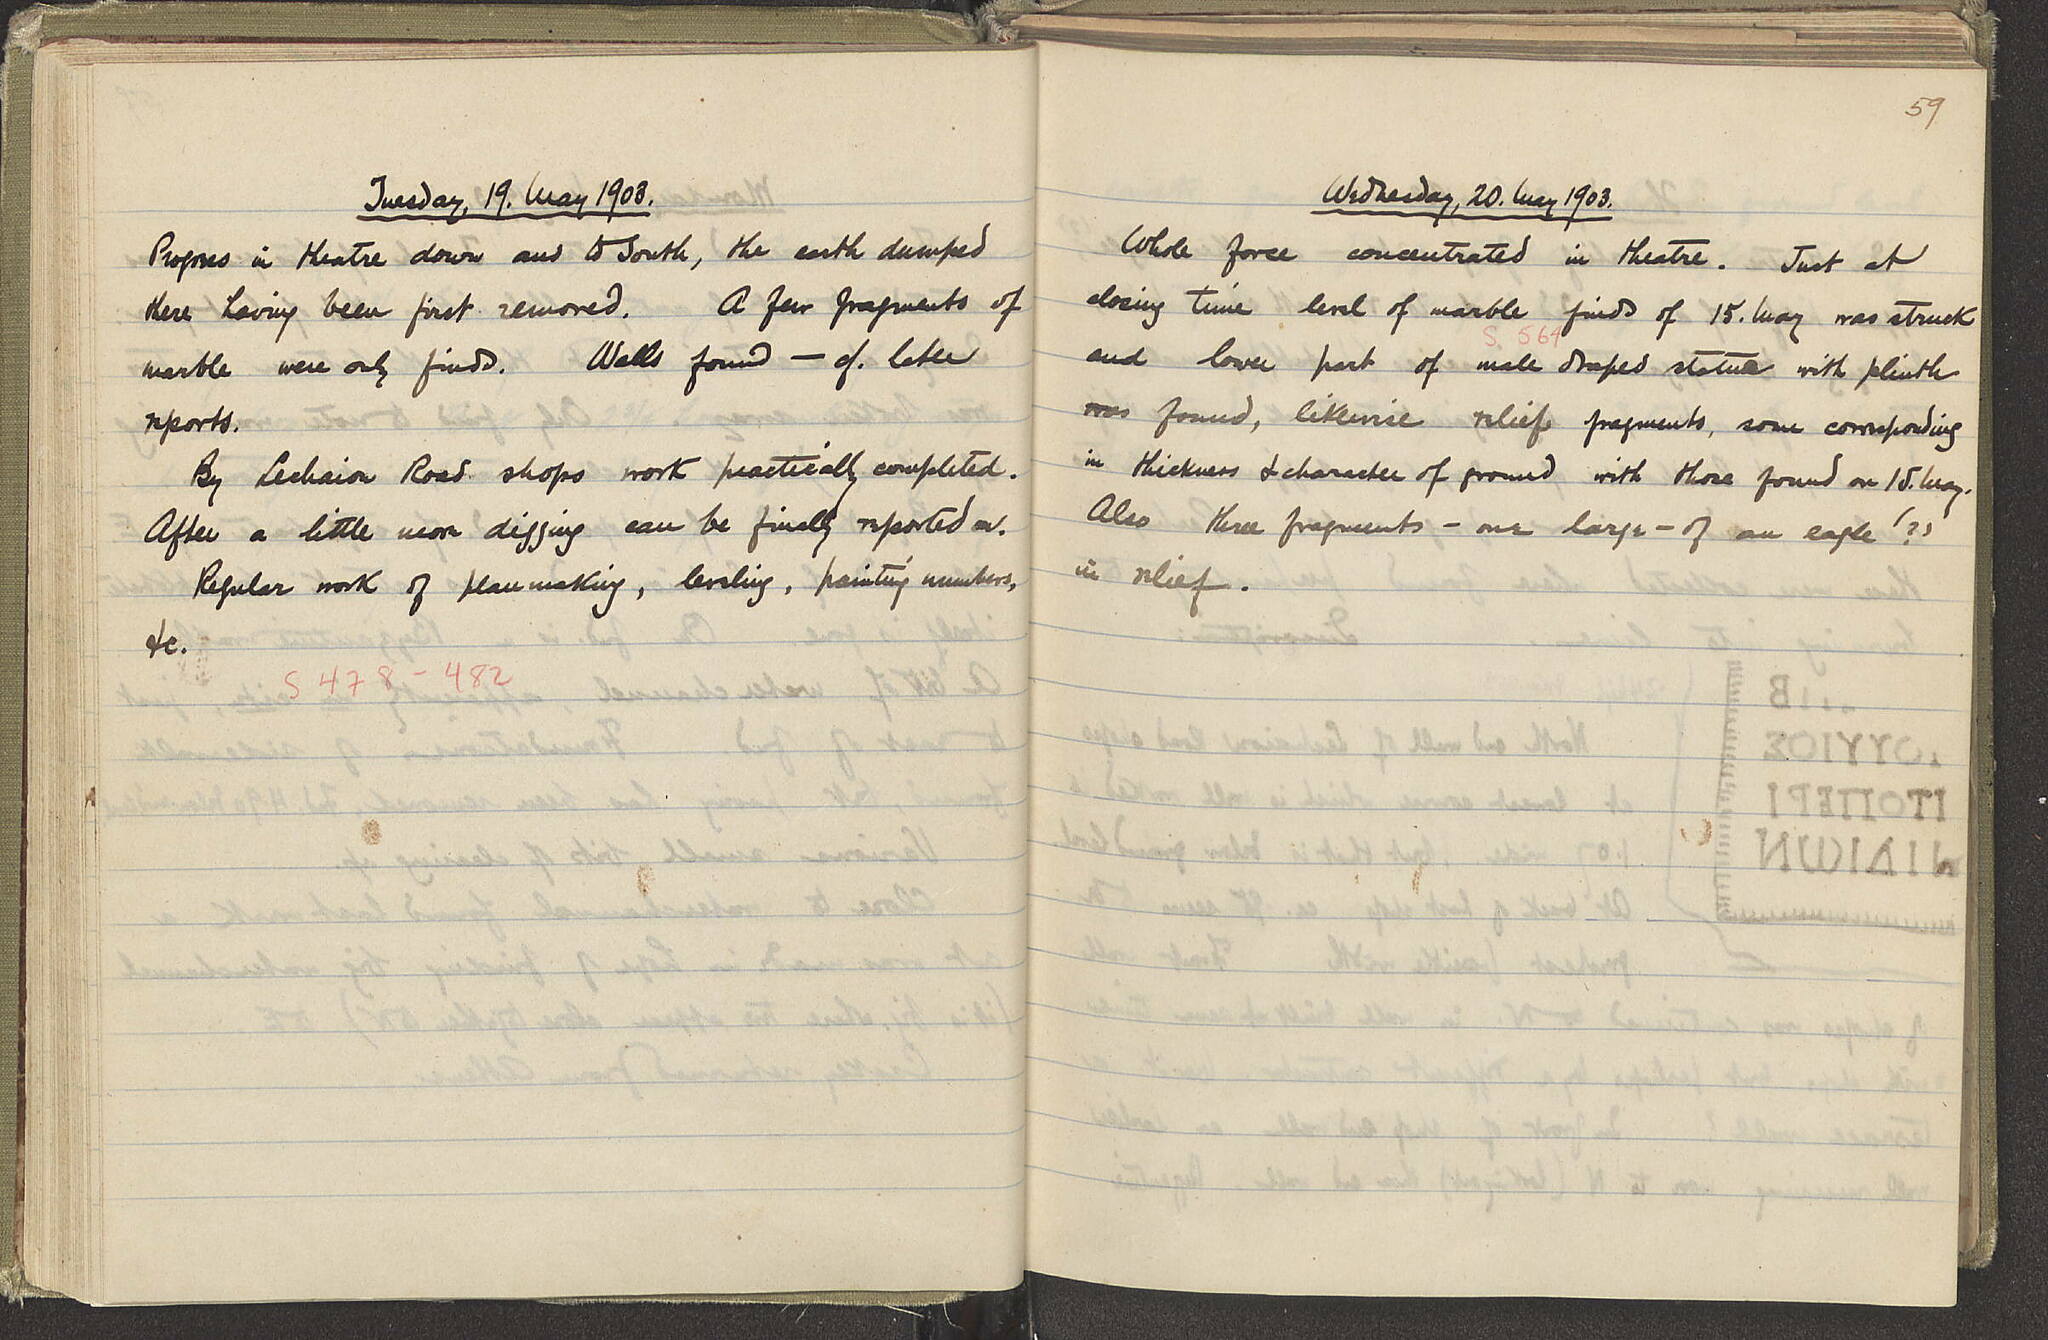 Tuesday, 19. May 1903.
Progress in theatre down and to South, the earth dumped
there having been first removed. A few fragments of
marble were only finds. Walls found — cf. later
reports.
By Lechaion Road shops work practically completed.
After a little more digging can be finally reported on.
Regular work of planmaking, leveling, painting numbers,
&c.
S 478 - 482
59
Wednesday, 20. May 1903.
Whole force concentrated in theatre. Just at
closing time level of marble finds of 15. May was struck
S 564
and lower part of male draped statue with plinth
was found, likewise relief fragments, some corresponding
in thickness & character of ground with those found on 15. May.
Also three fragments — one large — of an eagle (?)
in relief.